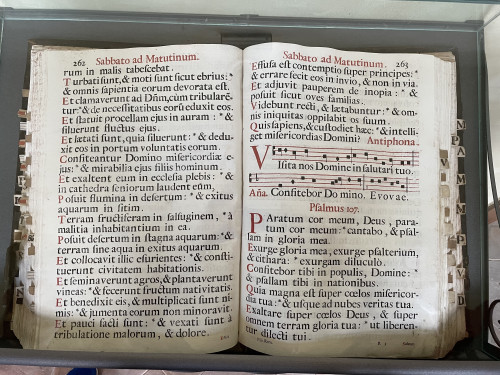 262 Sabbato ad Matutinum.
rum in malis tabescebat.
Turbati sunt, & moti sunt sicut ebrius: *
& omnis sapientia eorum devorata est.
Et clamaverunt ad Dñm, cùm tribularẽ-
tur: * & de necessitatibus eorũ eduxit eos.
Et statuit procellam ejus in auram: * &
siluerunt fluctus ejus.
Et lætati sunt, quia siluerunt: * & dedu-
xit eos in portum voluntatis eorum.
Confiteantur Domino misericordiæ e-
jus: * & mirabilia ejus filiis hominum.
Et exaltent eum in ecclesia plebis: * &
in cathedra seniorum laudent eum,
Posuit flumina in desertum: * & exitus
aquarum in sitim.
Terram fructiferam in salsuginem, * à
malitia habitantium in ea.
Posuit desertum in stagna aquarum: * &
terram sine aqua in exitus aquarum.
Et collocavit illic esurientes: * & consti-
tuerunt civitatem habitationis.
Et seminaverunt agros, & plantaverunt
vineas: * & fecerunt fructum nativitatis.
Et benedixit eis, & multiplicati sunt ni-
mis: * & jumenta eorum non minoravit.
Et pauci facti sunt: * & vexati sunt à
tribulatione malorum, & dolore.
Sabbato ad Matutinum. 263
Effusa est contemptio super principes: *
& errare fecit eos in invio, & non in via.
Et adjuvit pauperem de inopia: * &
posuit sicut oves familias.
Videbunt recti, & lætabuntur: * & om-
nis iniquitas oppilabit os suum.
Quis sapiens, & custodiet hæc: * & intelli-
get misericordias Domini? Antiphona.
Visita nos Domine in salutari tuo.
Aña. Confitebor Domino. Evovae.
Psalmus 107.
Paratum cor meum, Deus, para-
tum cor meum: * cantabo, & psal-
lam in gloria mea.
Exurge gloria mea, exurge psalterium,
& cithara: * exurgam diluculo.
Confitebor tibi in populis, Domine: *
& psallam tibi in nationibus.
Quia magna est super cœlos misericor-
dia tua: * & usque ad nubes veritas tua.
Exaltare super cœlos Deus, & super
omnem terram gloria tua: * ut liberen-
tur dilecti tui.